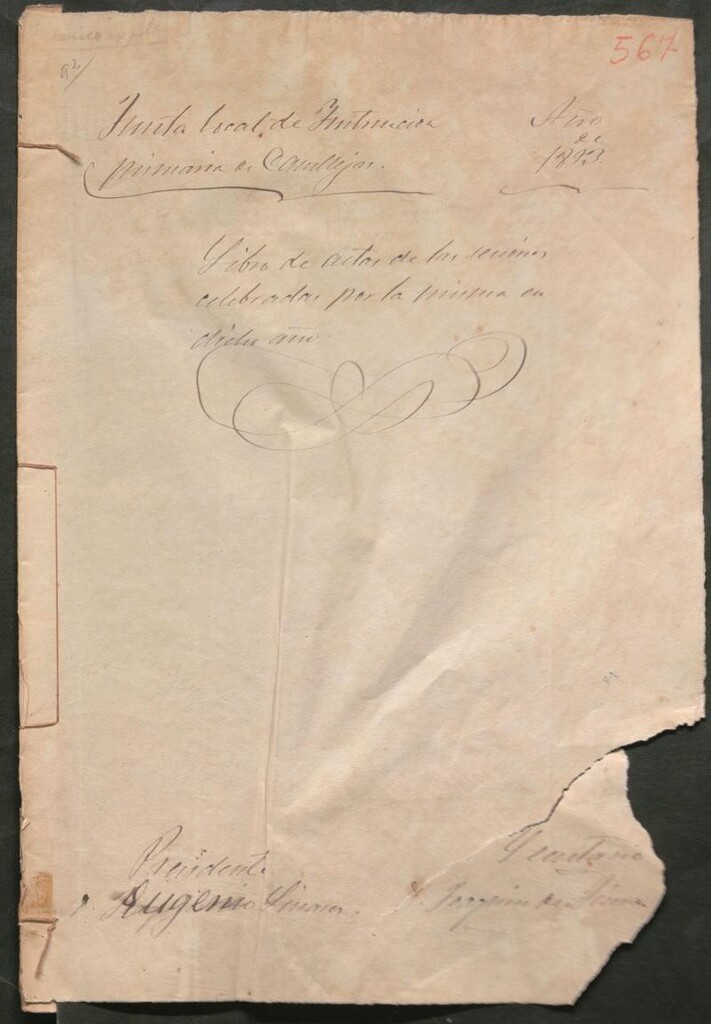 567
Junta local de Instruccion
primaria de Canillejas.
Año
de
1893
Libro de actas de las sesiones
celebradas por la misma en
dicho año.
Presidente
D. Eugenio Linares.
Secretario
D. Joaquin de